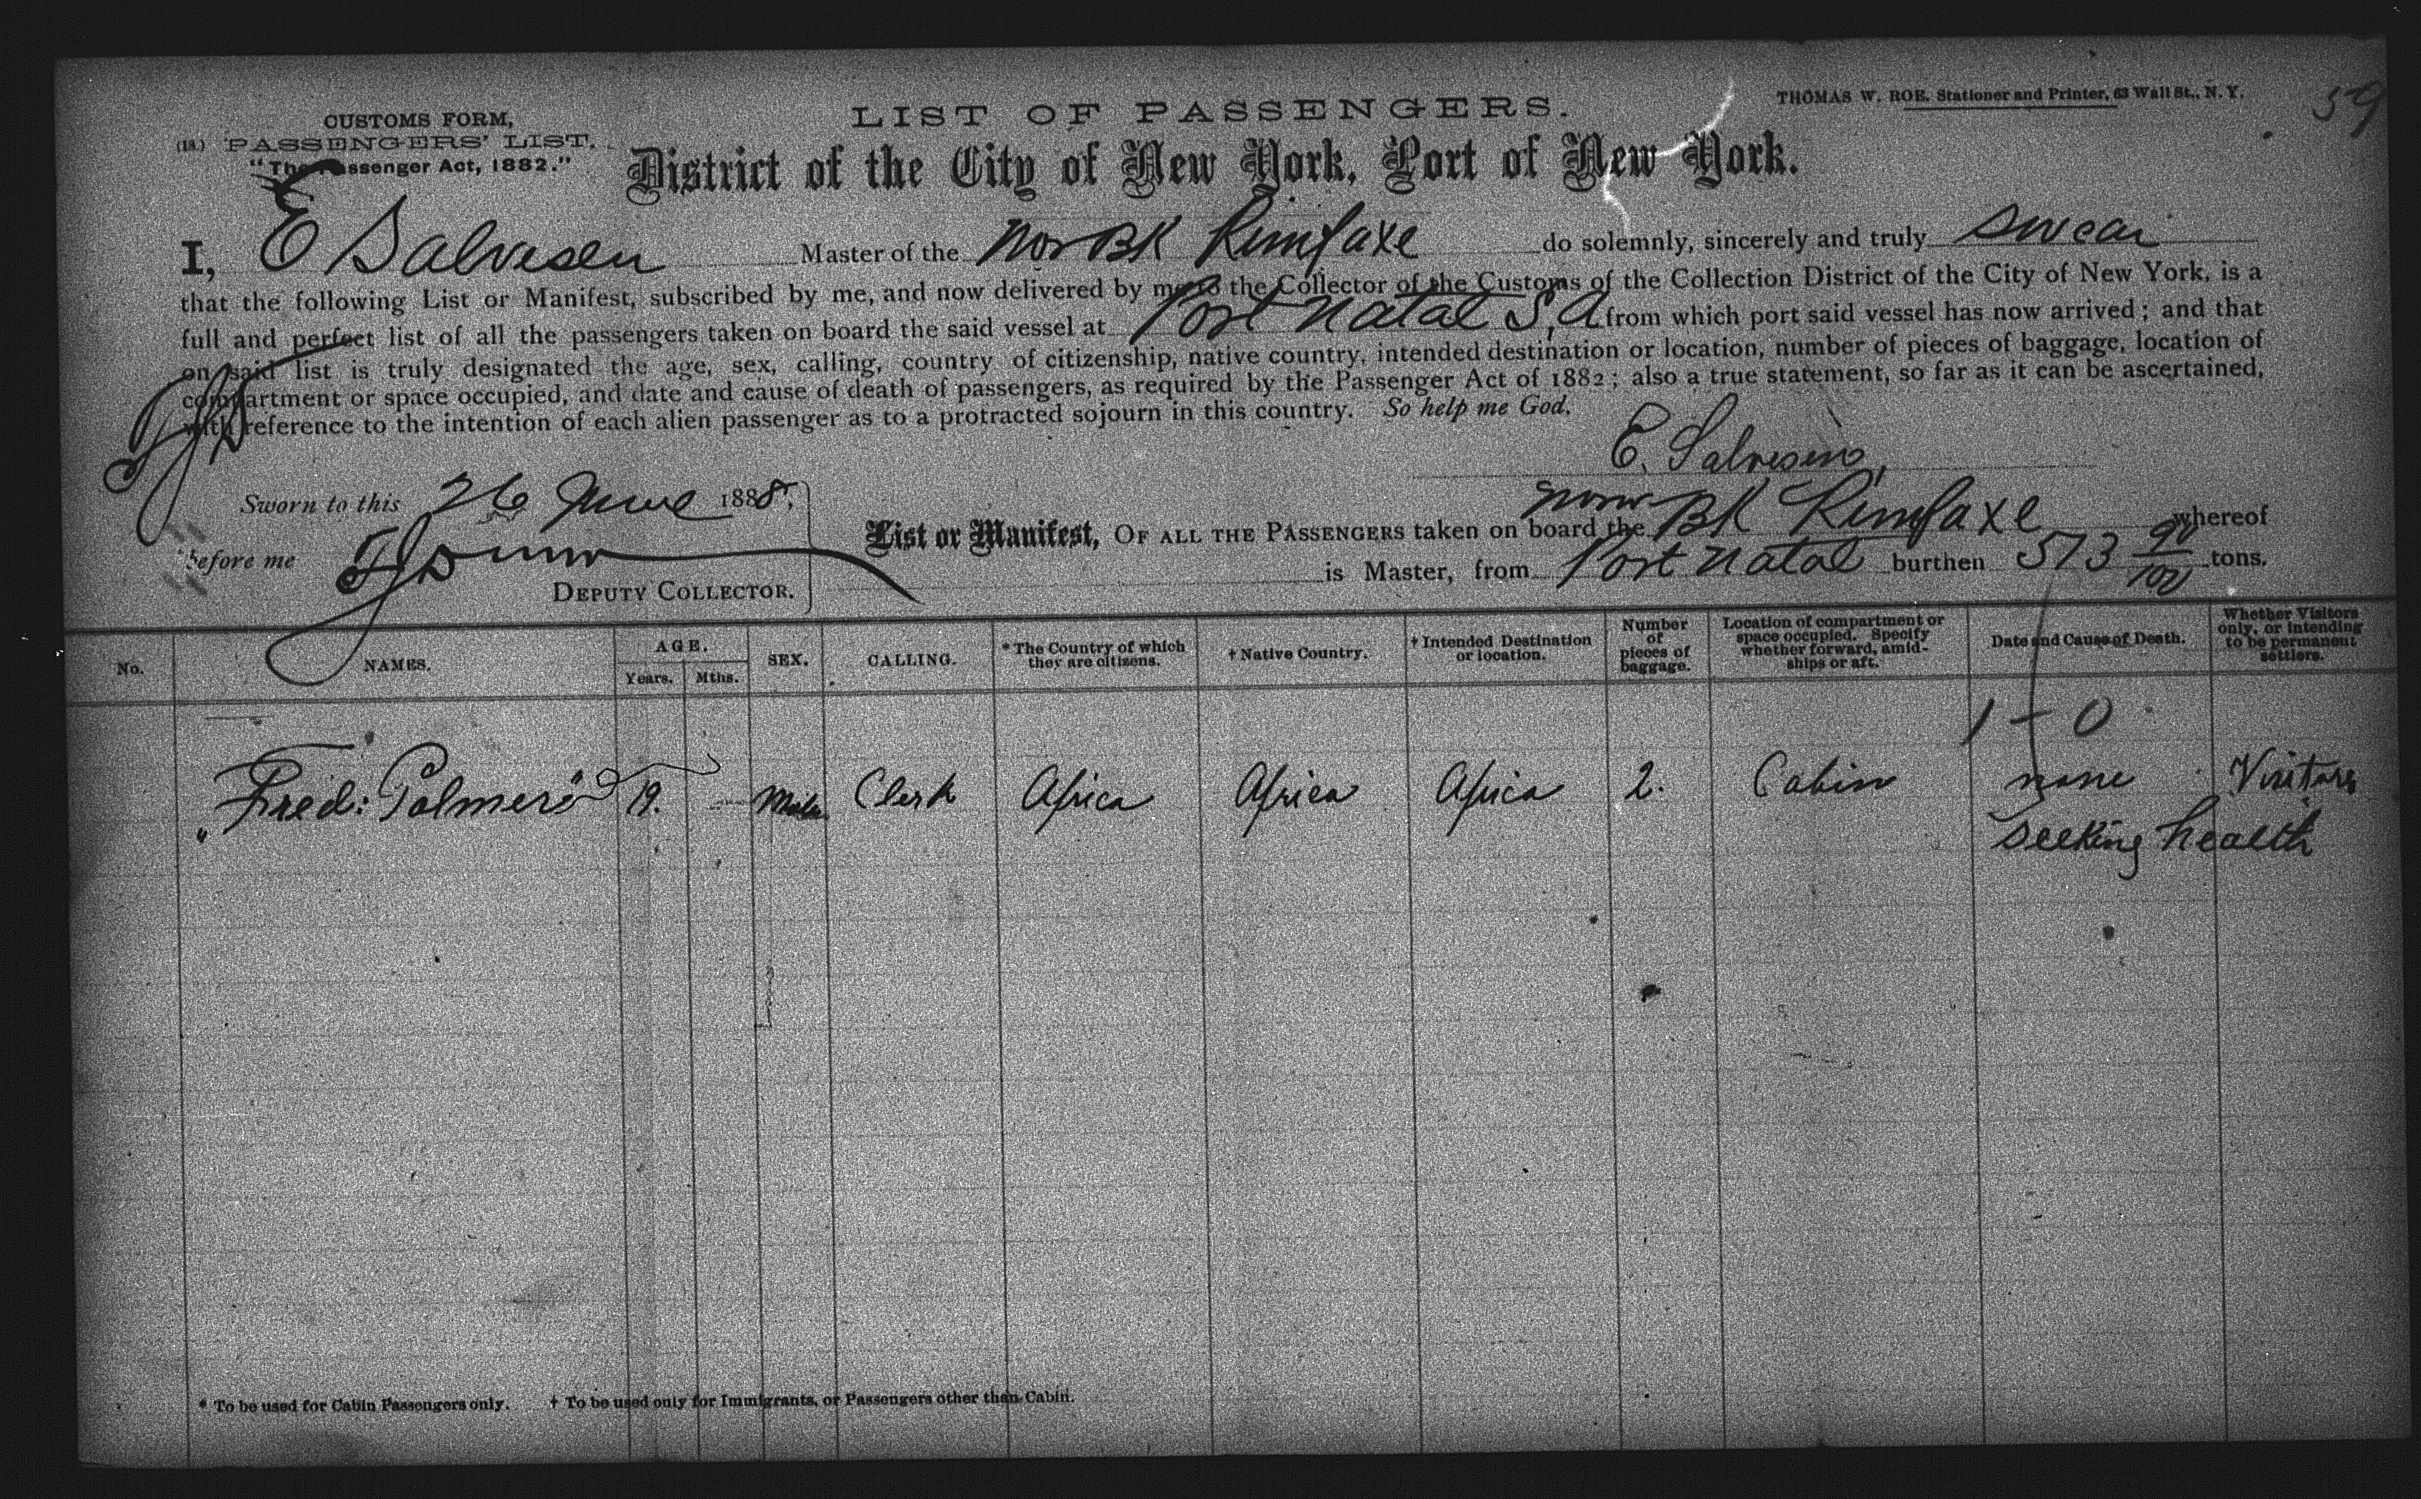 CUSTOMS FORM,
(13.) PASSENGERS' LIST.
"The Passenger Act, 1882."
LIST OF PASSENGERS.
THOMAS W. ROE, Stationer and Printer, 63 Wall St., N. Y.
59
District of the City of New York, Port of New York.
I, E Salvesen Master of the Nor BK Rimfaxe do solemnly, sincerely and truly swear
that the following List or Manifest, subscribed by me, and now delivered by me to the Collector of the Customs of the Collection District of the City of New York, is a
full and perfect list of all the passengers taken on board the said vessel at Port Natal S, A from which port said vessel has now arrived; and that
on said list is truly designated the age, sex, calling, country of citizenship, native country, intended destination or location, number of pieces of baggage, location of
compartment or space occupied, and date and cause of death of passengers, as required by the Passenger Act of 1882; also a true statement, so far as it can be ascertained,
with reference to the intention of each alien passenger as to a protracted sojourn in this country. So help me God.
E. Salvesen,
Sworn to this 26 June 1888,
before me
DEPUTY COLLECTOR.
List or Manifest, OF ALL THE PASSENGERS taken on board the Norw BK Rimfaxe whereof
is Master, from Port Natal burthen 573 90/100 tons.
No. NAMES. AGE. Years. Mths. SEX. CALLING. * The Country of which they are citizens. † Native Country. † Intended Destination or location. Number of pieces of baggage. Location of compartment or space occupied. Specify whether forward, amidships or aft. Date and Cause of Death. Whether Visitors only, or intending to be permanent settlers.
1 - 0
"Fred: Palmer" 19. — Male Clerk Africa Africa Africa 2. Cabin none Visitors
seeking health
* To be used for Cabin Passengers only. † To be used only for Immigrants, or Passengers other than Cabin.